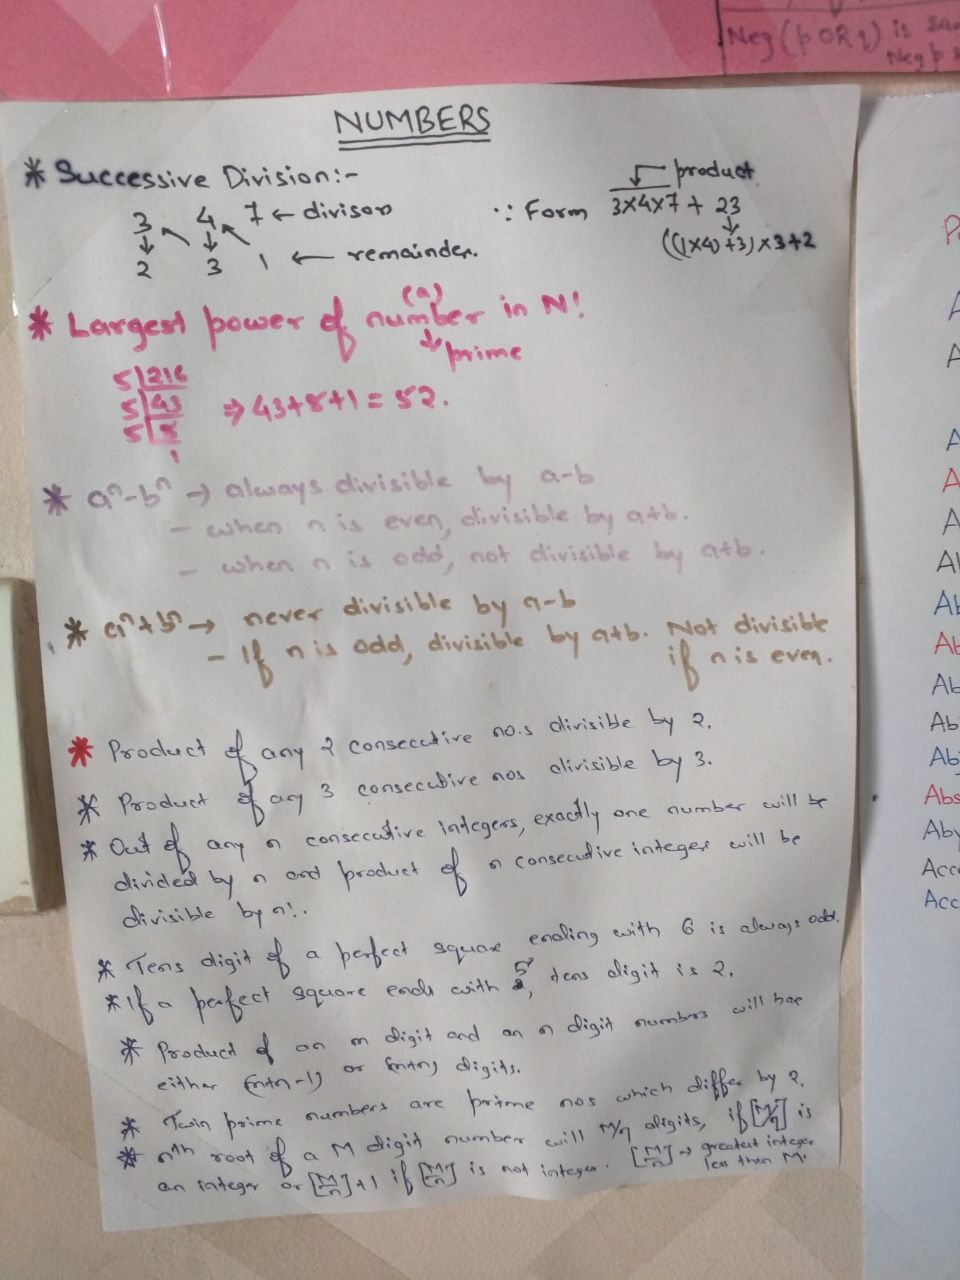 Neg (p OR q) is
Neg p
NUMBERS
* Successive Division:-
product
3 4 7 ← divisors
∵ Form 3x4x7 + 23
2 3 1 ← remainder.
((1x4)+3)x3+2
(a)
* Largest power of number in N!
prime
5|216
5|43 ⇒ 43+8+1 = 52.
5|8
1
* aⁿ-bⁿ → always divisible by a-b
- when n is even, divisible by a+b.
- when n is odd, not divisible by a+b.
* aⁿ+bⁿ → never divisible by a-b
- If n is odd, divisible by a+b. Not divisible
if n is even.
* Product of any 2 consecutive no.s divisible by 2.
* Product of any 3 consecutive nos divisible by 3.
* Out of any n consecutive integers, exactly one number will be
divided by n and product of n consecutive integers will be
divisible by n!.
* Tens digit of a perfect square ending with 6 is always odd.
* If a perfect square ends with 5, tens digit is 2.
* Product of an m digit and an n digit numbers will hae
either (m+n-1) or (m+n) digits.
* Twin prime numbers are prime nos which differ by 2.
* nth root of a M digit number will M/n digits, if [M/n] is
an integer or [M/n]+1 if [M/n] is not integer. [M/n] → greatest integer
less then M.
A
A
A
A
A
Al
Ab
Ab
Ab
Abi
Abj
Abs
Aby
Acc
Acc